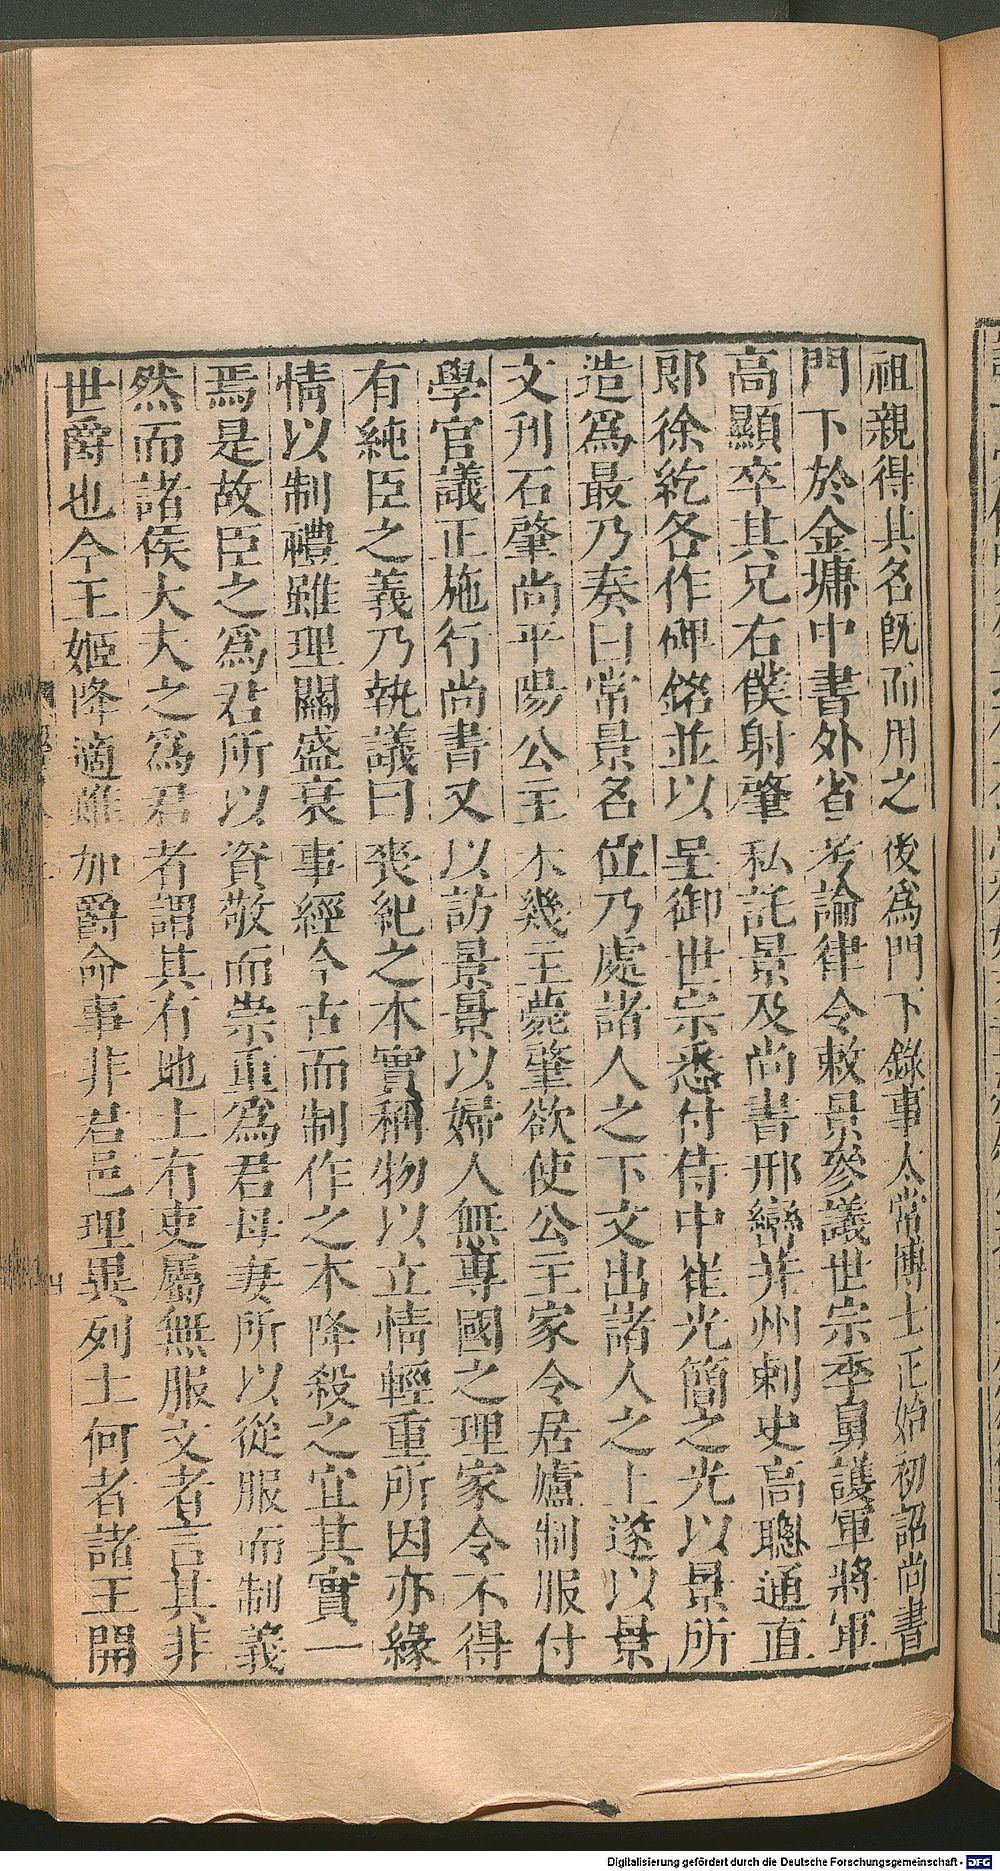 祖親得其名旣而用之後爲門下錄事太常博士正始初詔尚書
門下於金墉中書外省考論律令敕景參議世宗季舅護軍將軍
高顯卒其兄右僕射肇私託景及尚書邢巒并州刺史高聰通直
郎徐紇各作碑銘並以呈御世宗悉付侍中崔光簡之光以景所
造爲最乃奏曰常景名位乃處諸人之下文出諸人之上遂以景
文刊石肇尚平陽公主未幾主薨肇欲使公主家令居廬制服付
學官議正施行尚書又以訪景景以婦人無專國之理家令不得
有純臣之義乃執議曰喪紀之本實稱物以立情輕重所因亦緣
情以制禮雖理關盛衰事經今古而制作之本降殺之宜其實一
焉是故臣之爲君所以資敬而崇重爲君母妻所以從服而制義
然而諸侯大夫之爲君者謂其有地土有吏屬無服文者言其非
世爵也今王姬降適雖加爵命事非君邑理異列土何者諸王開
Digitalisierung gefördert durch die Deutsche Forschungsgemeinschaft - DFG